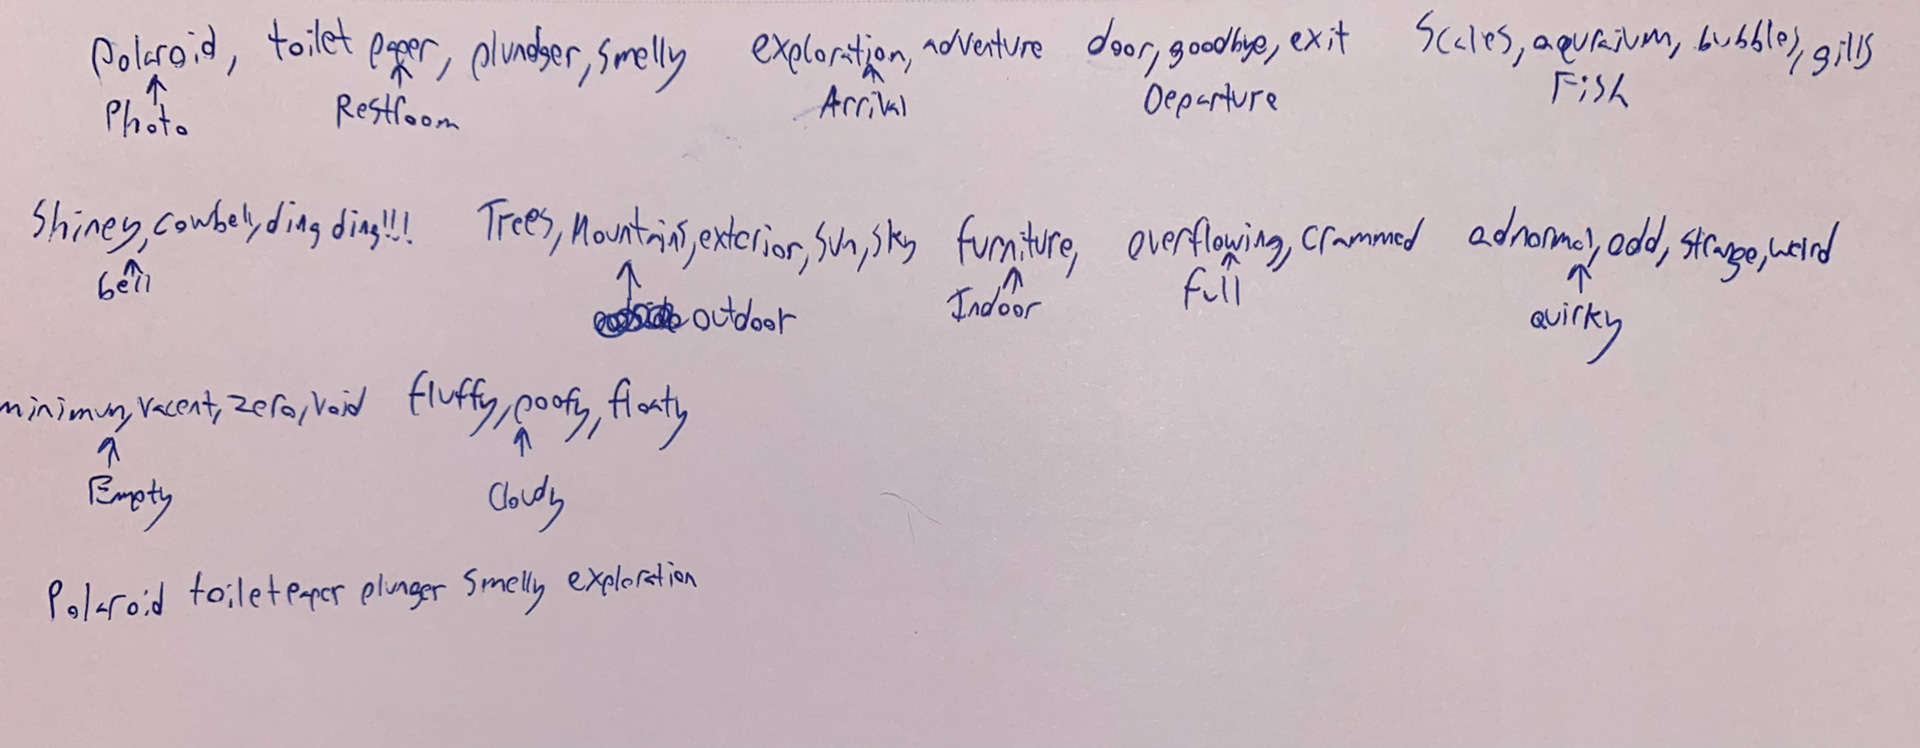 Polaroid, toilet paper, plundger, smelly exploration, adventure door, goodbye, exit Scales, aquraium, bubbles, gills
Photo Restroom Arrival Departure Fish
Shiney, cowbell, ding ding!!! Trees, Mountains, exterior, sun, sky furniture, overflowing, crammed adnormal, odd, strange, weird
bell outdoor Indoor full quirky
minimum, vacent, zero, void fluffy, poofy, floaty
Empty Cloudy
Polaroid toiletpaper plunger smelly exploration